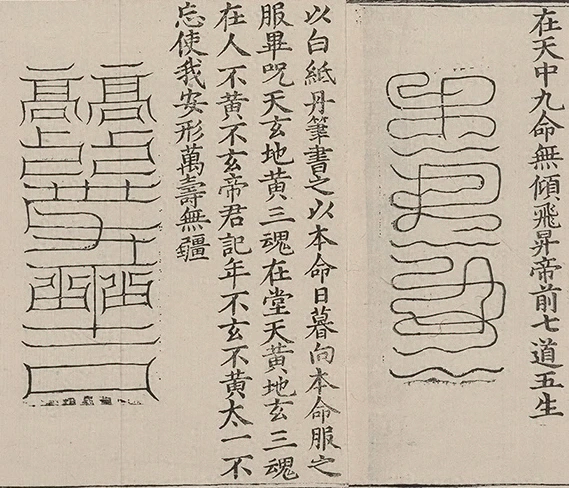 在天中九命無傾飛昇帝前七道五生
以白紙丹筆書之以本命日暮向本命服之
服畢呪天玄地黄三魂在堂天黄地玄三魂
在人不黄不玄帝君記年不玄不黄太一不
忘使我安形萬壽無疆